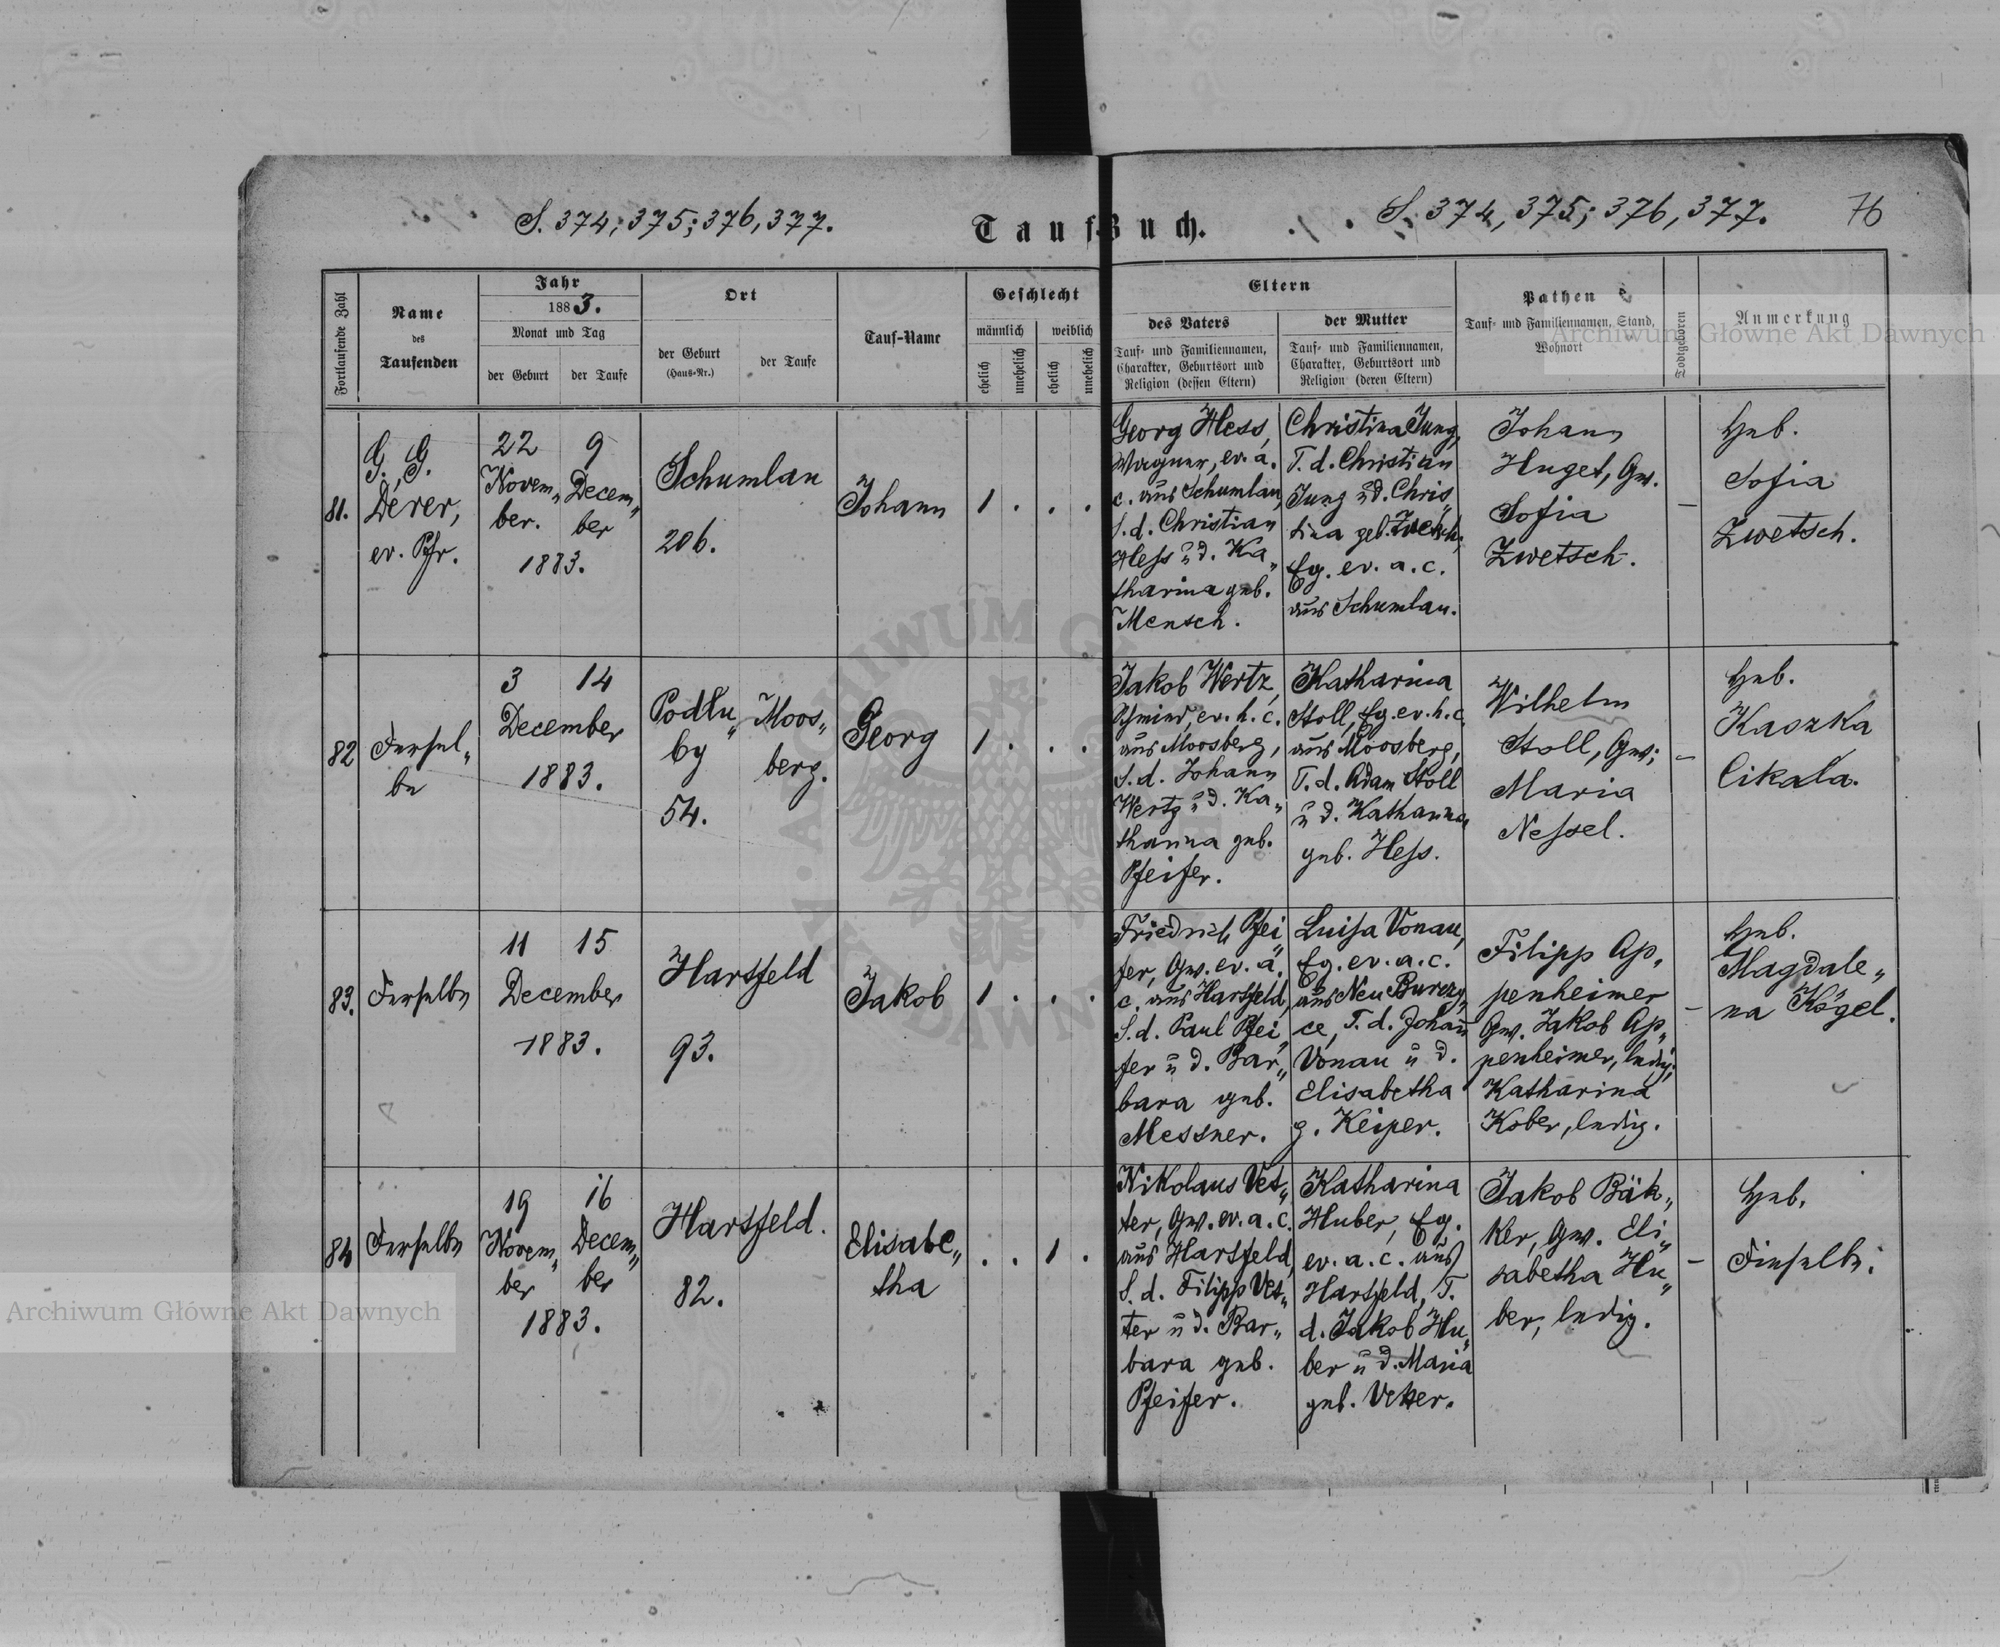 S. 374; 375; 376, 377.
Tauf-Buch.
S. 374, 375; 376, 377.
76
Fortlaufende Zahl
Name
des
Taufenden
Jahr
1883.
Monat und Tag
der Geburt
der Taufe
Ort
der Geburt
(Haus-Nr.)
der Taufe
Tauf-Name
Geschlecht
männlich
weiblich
ehelich
unehelich
ehelich
unehelich
Eltern
des Vaters
Tauf- und Familiennamen,
Charakter, Geburtsort und
Religion (dessen Eltern)
der Mutter
Tauf- und Familiennamen,
Charakter, Geburtsort und
Religion (deren Eltern)
Pathen
Tauf- und Familiennamen, Stand,
Wohnort
Todtgeboren
Anmerkung
81.
G. G.
Derer,
ev. Pfr.
22
Novem„
ber.
9
Decem„
ber
1883.
Schumlau
206.
Johann
1 . . .
Georg Hess,
Wagner, ev. a.
c. aus Schumlau,
S. d. Christian
Hess u d. Ka„
tharina geb.
Mensch.
Christina Jung,
T. d. Christian
Jung u d. Chris„
tina geb. Zwetsch,
Eg. ev. a. c.
aus Schumlau.
Johann
Huget, Gw.
Sofia
Zwetsch.
–
Heb.
Sofia
Zwetsch.
82
Dersel„
be
3
14
December
1883.
Podlu„
by
54.
Moos„
berg.
Georg
1 . . .
Jakob Wertz,
Schmied, ev. h. c.
aus Moosberg,
S. d. Johann
Wertz u d. Ka„
tharina geb.
Pfeifer.
Katharina
Stoll, Eg. ev. h. c.
aus Moosberg,
T. d. Adam Stoll
u d. Katharina
geb. Hess.
Wilhelm
Stoll, Gw;
Maria
Nessel.
–
Heb.
Kaszka
Cikala.
83.
Derselbe
11
15
December
1883.
Hartfeld
93.
Jakob
1 . . .
Friedrich Pfei„
fer, Gw. ev. a.
c. aus Hartfeld,
S. d. Paul Pfei„
fer u d. Bar„
bara geb.
Messner.
Luisa Vonau,
Eg. ev. a. c.
aus Neu Burczy„
ce, T. d. Johann
Vonau u d.
Elisabetha
g. Keiper.
Filipp Ap„
penheimer
Gw. Jakob Ap„
penheimer, ledig;
Katharina
Kober, ledig.
–
Heb.
Magdale„
na Kögel.
84
Derselbe
19
Novem„
ber
16
Decem„
ber
1883.
Hartfeld.
82.
Elisabe„
tha
. . 1 .
Nikolaus Vet„
ter, Gw. ev. a. c.
aus Hartfeld,
S. d. Filipp Vet„
ter u d. Bar„
bara geb.
Pfeifer.
Katharina
Huber, Eg.
ev. a. c. aus
Hartfeld, T.
d. Jakob Hu„
ber u d. Maria
geb. Veker.
Jakob Bäk„
ker, Gw. Eli„
sabetha Hu„
ber, ledig.
–
Heb.
Dieselbe.
Archiwum Główne Akt Dawnych
Archiwum Główne Akt Dawnych